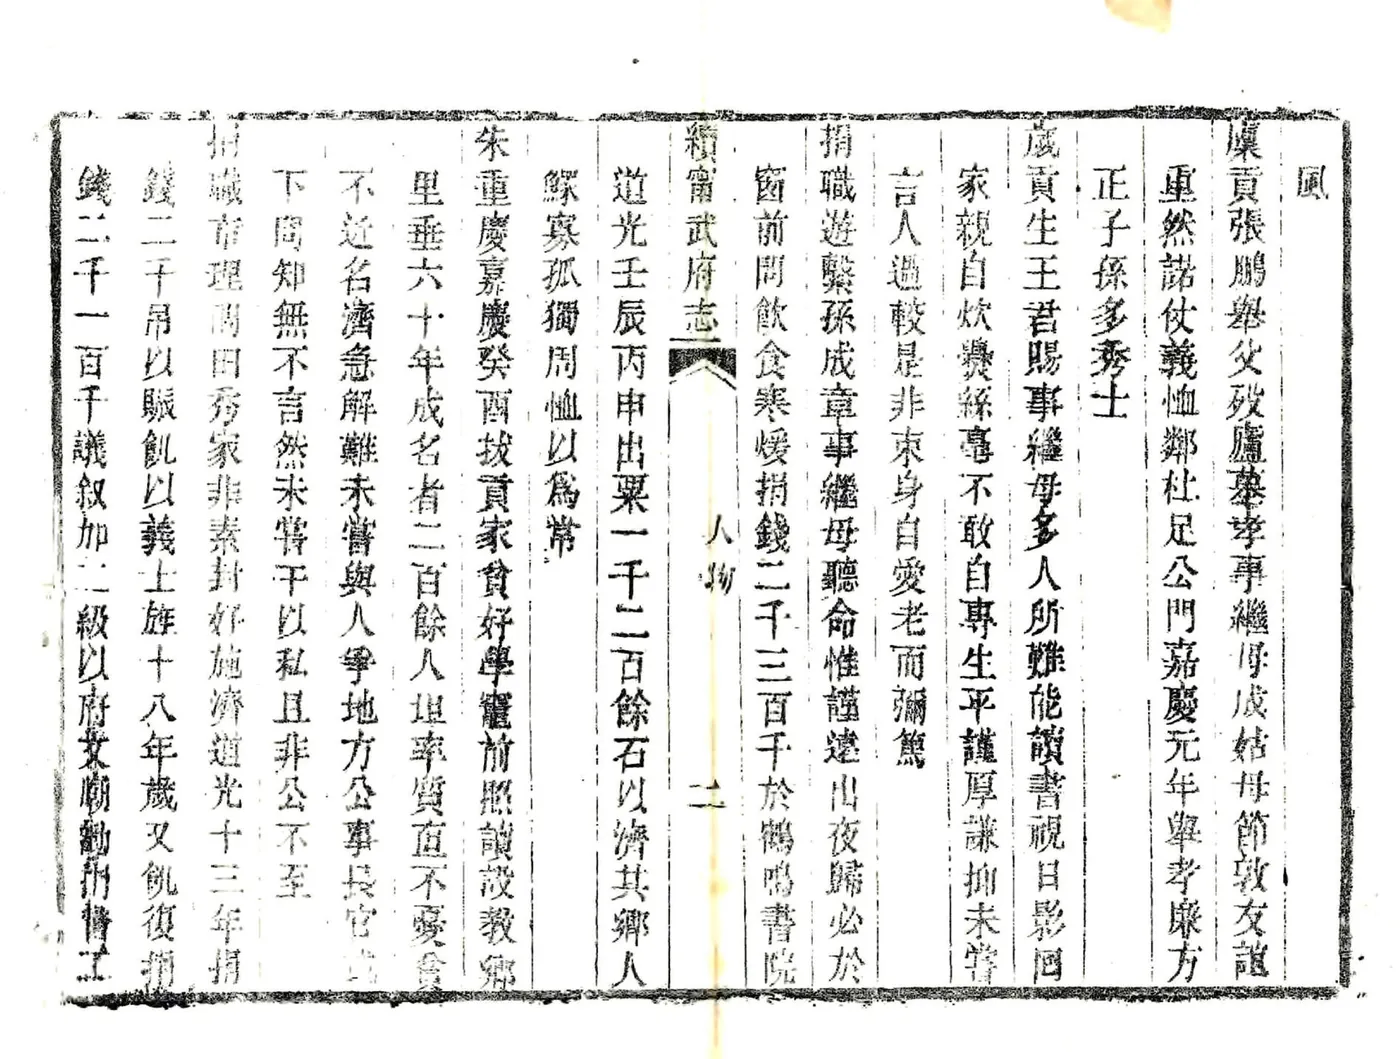 風
廩貢張鵬舉父歿廬墓孝事繼母成姑母節敦友誼
重然諾仗義恤鄰杜足公門嘉慶元年舉孝廉方
正子孫多秀士
歲貢生王君賜事繼母多人所難能讀書視日影回
家親自炊爨絲毫不敢自專生平謹厚謙抑未嘗
言人過較是非束身自愛老而彌篤
捐職遊繫孫成章事繼母聽命惟謹遠出夜歸必於
窗前問飲食寒煖捐錢二千三百千於鶴鳴書院
續甯武府志
人物
二
道光壬辰丙申出粟一千二百餘石以濟其鄉人
鰥寡孤獨周恤以爲常
朱重慶嘉慶癸酉拔貢家貧好學竈前照讀設教鄉
里垂六十年成名者二百餘人坦率質直不憂貧
不近名濟急解難未嘗與人爭地方公事長官
下問知無不言然未嘗干以私且非公不至
捐職布理問田秀家非素封好施濟道光十三年捐
錢二千吊以賑飢以義士旌十八年歲又飢復捐
錢二千一百千議叙加二級以府文廟勸捐督工